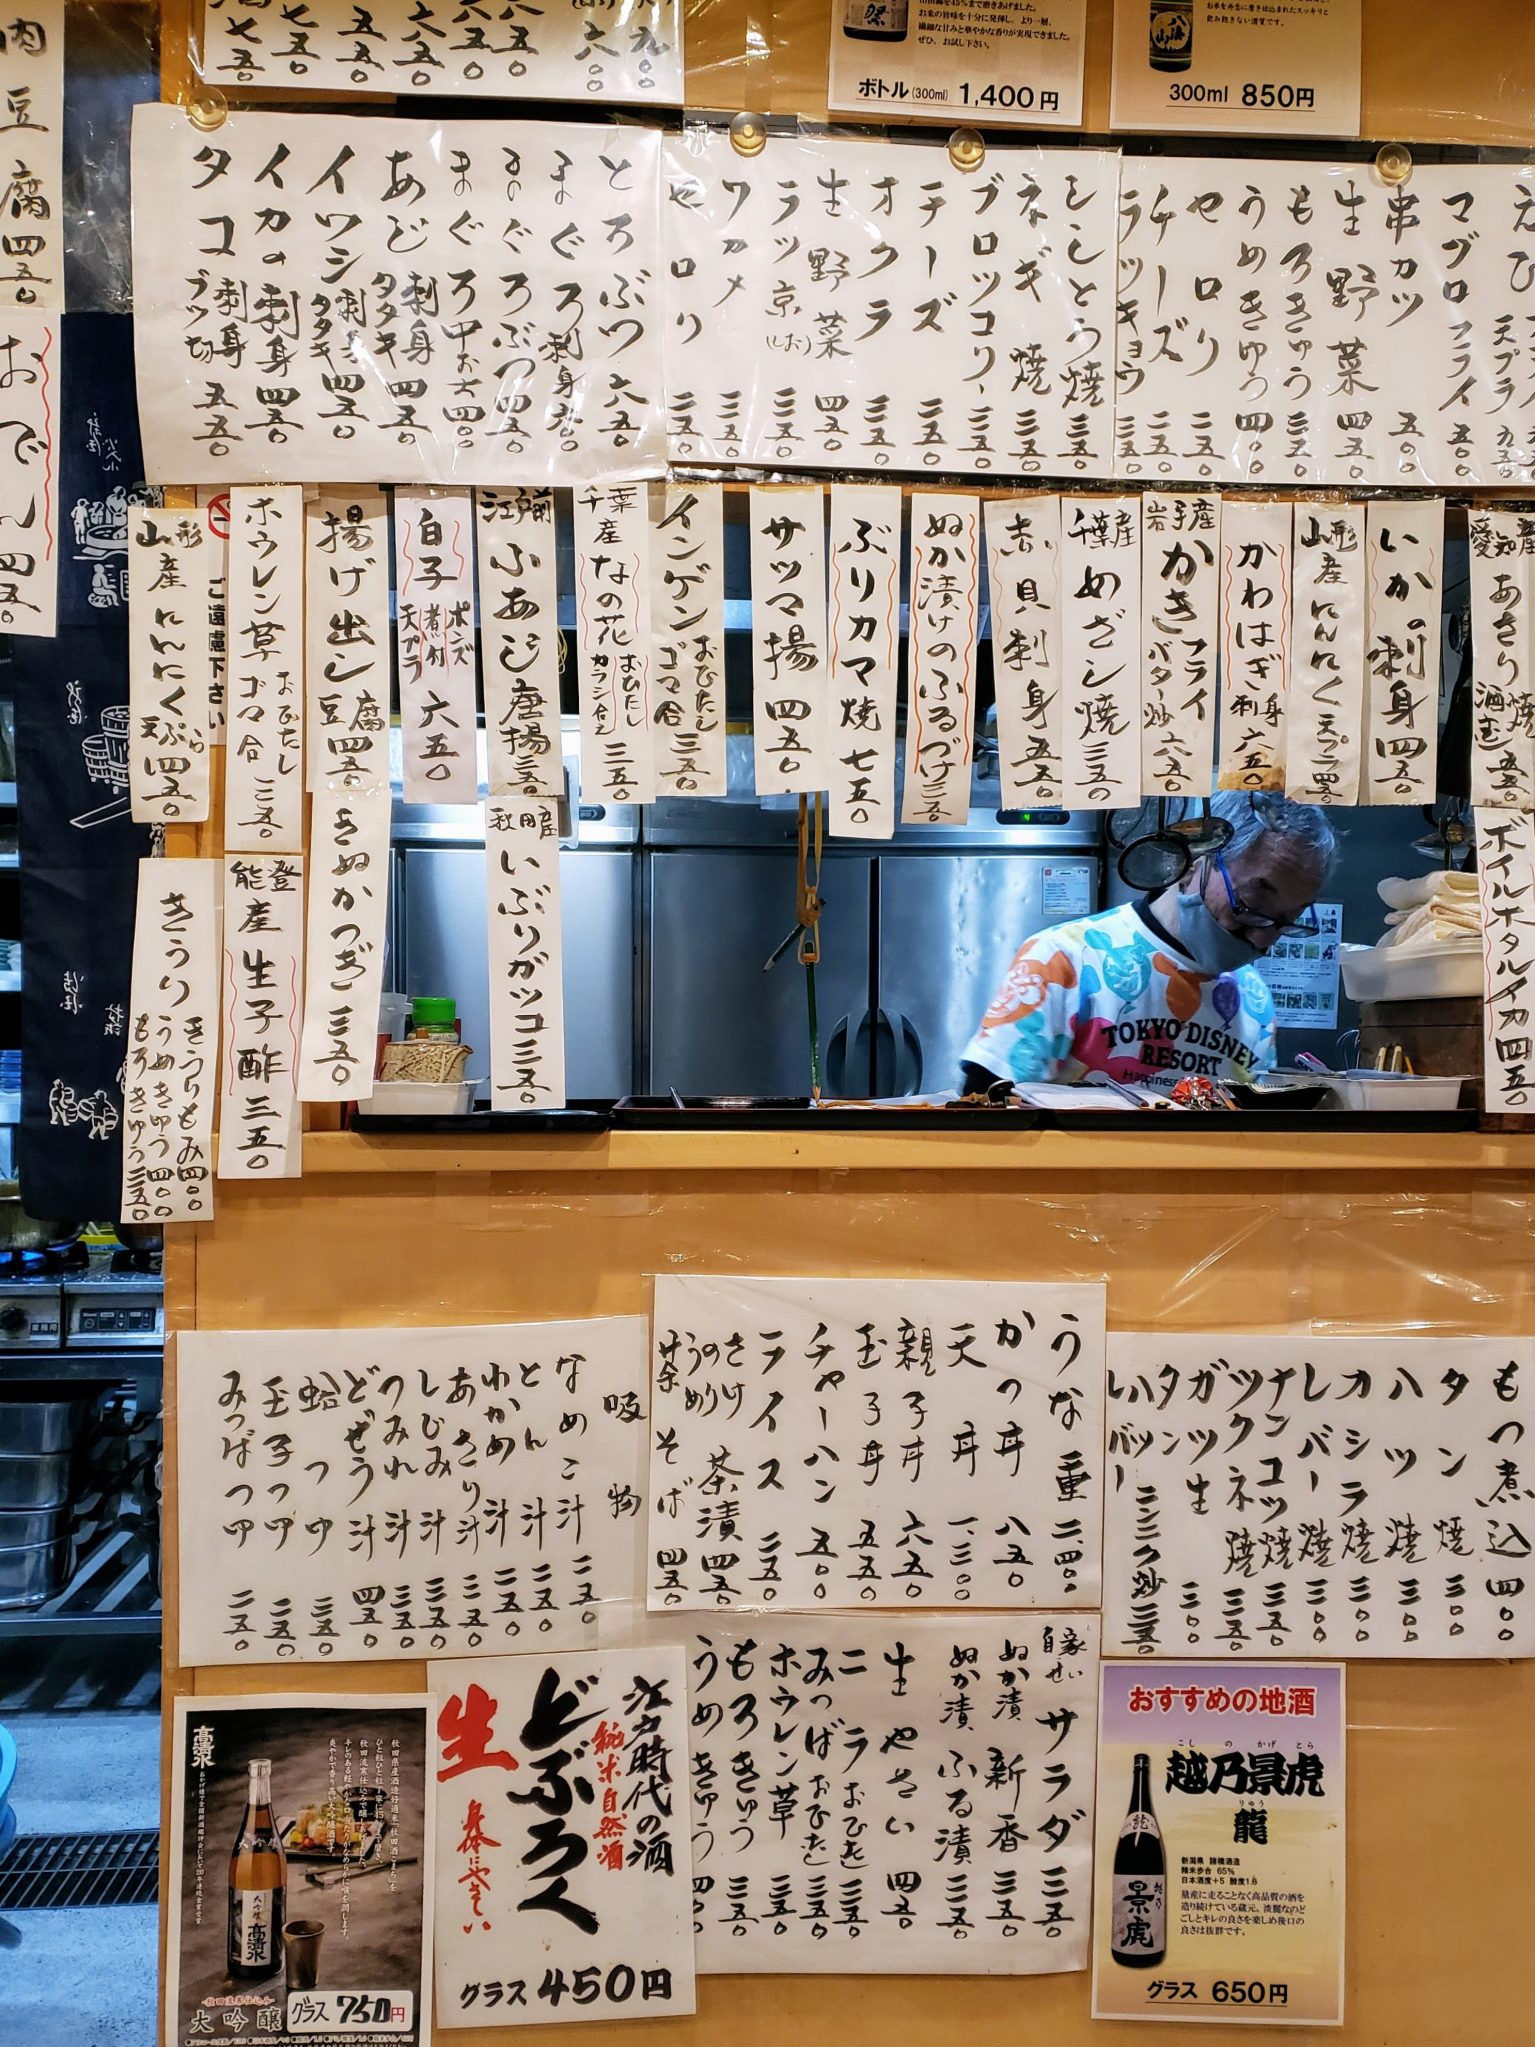 山田錦を45%まで磨きあげました。
お米の旨味を十分に発揮し、より一層、
繊細な甘みと華やかな香りが実現できました。
ぜひ、お試し下さい。
ボトル(300ml) 1,400円
300ml 850円
肉豆腐 四五〇
おでん 四五〇
マグロフライ 五〇〇
串カツ 五〇〇
生野菜 四五〇
もろきゅう 三五〇
うめきゅう 四〇〇
セロリ 二五〇
チーズ 二五〇
ラッキョウ 三五〇
ししとう焼 三五〇
ネギ焼 三五〇
ブロッコリー 三五〇
チーズ 二五〇
オクラ 三五〇
生野菜 四五〇
ラッ京(しお) 三五〇
ワカメ 三五〇
セロリ 二五〇
とろぶつ 六五〇
まぐろ刺身
まぐろぶつ 四五〇
まぐろ中お
あじ刺身タタキ 四五〇
イワシ刺身タタキ 四五〇
イカの刺身 四五〇
タコ刺身ブツ切 五五〇
愛知産 あさり焼 酒むし 五五〇
いかの刺身 四五〇
山形産 にんにく天プラ 四五〇
かわはぎ刺身 六五〇
岩手産 かきフライ バター炒 六五〇
千葉産 めざし焼 三五〇
赤貝刺身 五五〇
ぬか漬けのふるづけ 三五〇
ぶりカマ焼 七五〇
サツマ揚 四五〇
インゲン おひたし ゴマ合 三五〇
千葉産 なの花 おひたし カラシ合え 三五〇
江戸前 小あじ唐揚 三五〇
白子 ポンズ 煮付 天プラ 六五〇
揚げ出し豆腐 四五〇
ホウレン草 おひたし ゴマ合 三五〇
山形産 にんにく天ぷら 四五〇
ご遠慮下さい
ボイルホタルイカ 四五〇
秋田産 いぶりガッコ 三五〇
きぬかつぎ 三五〇
能登産 生子酢 三五〇
きうり きうりもみ 四〇〇 うめきゅう 四〇〇 もろきゅう 三五〇
TOKYO DISNEY
RESORT
もつ煮込 四〇〇
タン焼 三〇〇
ハツ焼 三〇〇
カシラ焼 三〇〇
レバー焼 三〇〇
ナンコツ焼 三五〇
ツクネ焼 三五〇
ガツ生 三〇〇
タン
ハツ
レバー
ニンニク炒 三五〇
うな重 二、四〇〇
かつ丼 八五〇
天丼 一、三〇〇
親子丼 六五〇
玉子丼 五五〇
チャーハン 五〇〇
ライス 二五〇
さけ
のり
うめ
茶漬 四五〇
茶そば 四五〇
吸物
なめこ汁 二五〇
とん汁 二五〇
わかめ汁 二五〇
あさり汁 三五〇
しじみ汁 三五〇
つみれ汁 三五〇
どぜう汁 四五〇
蛤つゆ 三五〇
玉子つゆ 二五〇
みつばつゆ 二五〇
自家せい サラダ 三五〇
ぬか漬 新香 三五〇
ぬか漬 ふる漬 三五〇
生やさい 四五〇
ニラおひたし 三五〇
みつばおひたし 三五〇
ホウレン草 三五〇
もろきゅう 三五〇
うめきゅう 四〇〇
江戸時代の酒
純米自然酒
どぶろく
生
身体にやさしい
グラス 450円
おすすめの地酒
こしのかげとら
越乃景虎
りゅう
龍
新潟県 諸橋酒造
精米歩合 65%
日本酒度+5 酸度1.6
量産に走ることなく高品質の酒を
造り続けている蔵元。淡麗なのど
ごしとキレの良さを楽しめ後口の
良さは抜群です。
グラス 650円
高清水
大吟醸
グラス 750円